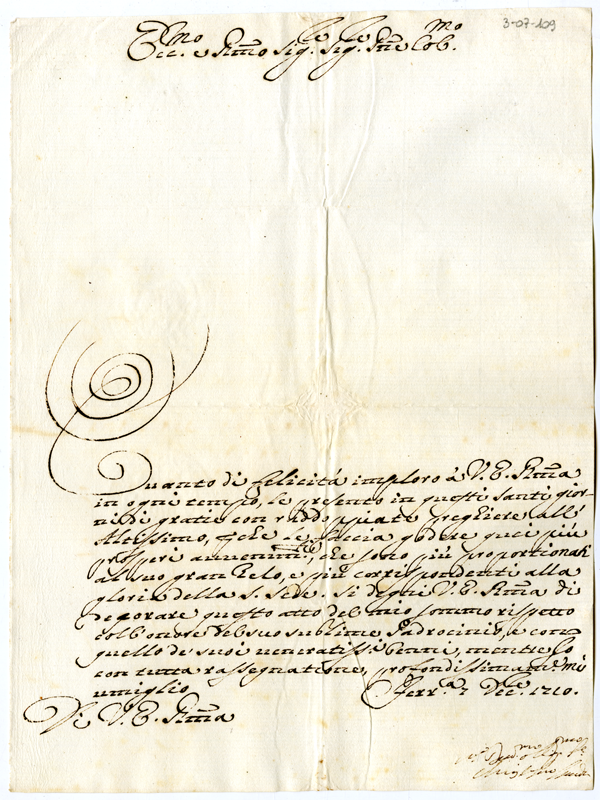 3-07-109
Ecc.mo e Rmo Sig.le Sig.le Pne Cob.mo
Quanto di felicità imploro à V. E. Rma
in ogni tempo, le presento in questi santi gior-
ni di gratie con raddoppiate preghiere all'
Altissimo, che Le faccia godere quei più
prosperi auuenim.ti, che sono più proportionati
al suo gran Zelo, e più corrispondenti alla
gloria della S. Sede. Si degni V. E. Rma di
decorare questo atto del mio sommo rispetto
coll'onore del suo sublime Padrocinio, e con
quello de' suoi veneratissi Cenni, mentre Io
con tutta rassegnatione, profondissimam.e mi
umiglio. Ferr.a Dec.e 1710.
Di V. E. Rma